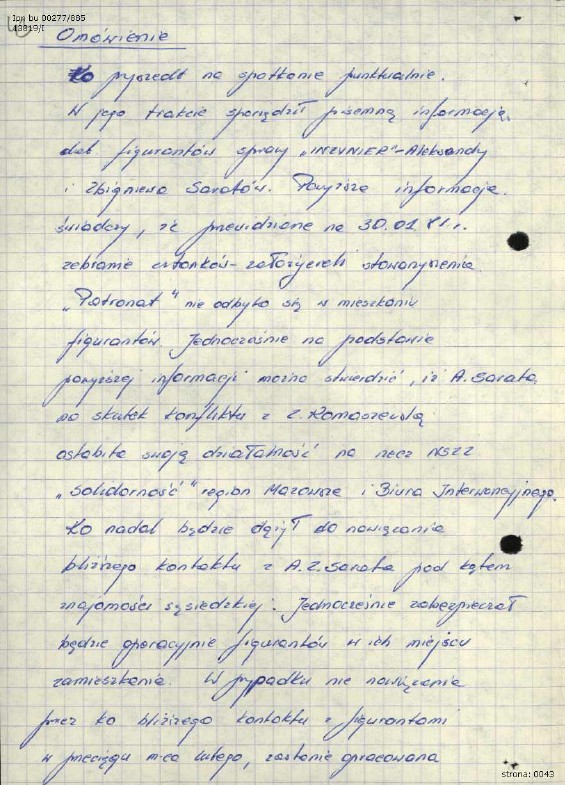 Ipn bu 00277/885
43819/I
Omówienie
Ko przyszedł na spotkanie punktualnie.
W jego trakcie sporządził pisemną informację
dot figurantów sprawy „INŻYNIER"-Aleksandy
i Zbigniewa Saratów. Powyższa informacja
świadczy, że przewidziane na 30.01 81.r.
zebranie członków-założycieli stowarzyszenia
„Patronat" nie odbyło się w mieszkaniu
figurantów. Jednocześnie na podstawie
powyższej informacji można stwierdzić, iż A. Sarata
na skutek konfliktu z Z. Romaszewską
osłabiła swoją działalność na rzecz NSZZ
„Solidarność" region Mazowsze i Biura Interwencyjnego.
Ko nadal będzie dążył do nawiązania
bliższego kontaktu z A.Z. Sarata pod kątem
znajomości sąsiedzkiej. Jednocześnie zabezpieczał
będzie operacyjnie figurantów w ich miejscu
zamieszkania. W przypadku nie nawiązania
przez ko bliższego kontaktu z figurantami
w przeciągu m-ca lutego, zostanie opracowana
strona: 0043